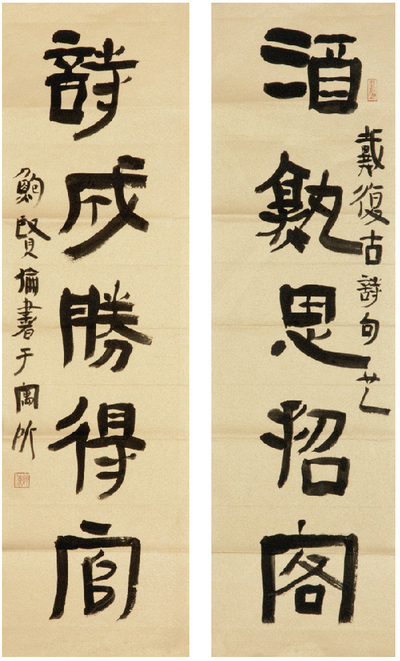 戴復古詩句
酒熟思招客
詩成勝得官
鮑賢倫書于寓所